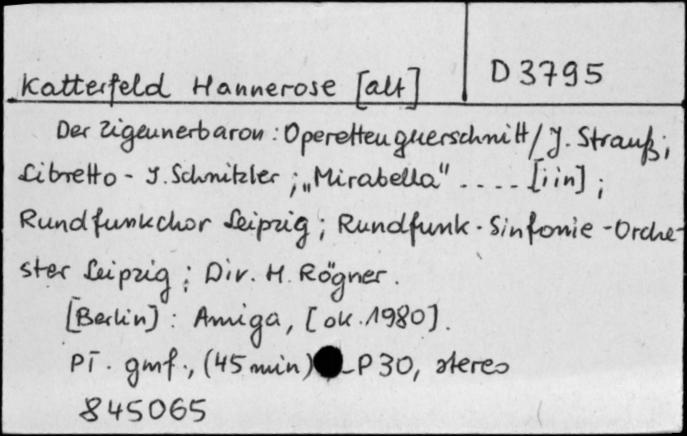 Katterfeld Hannerose [alt]
D 3795
Der Zigeunerbaron : Operettenquerschnitt / J. Strauß;
Libretto - I. Schnitzler ; „Mirabella" .... [i in] ;
Rundfunkchor Leipzig ; Rundfunk - Sinfonie - Orche-
ster Leipzig ; Dir. H. Rögner.
[Berlin] : Amiga, [ok. 1980].
Pł. gmf., (45 min) LP 30, stereo
845065